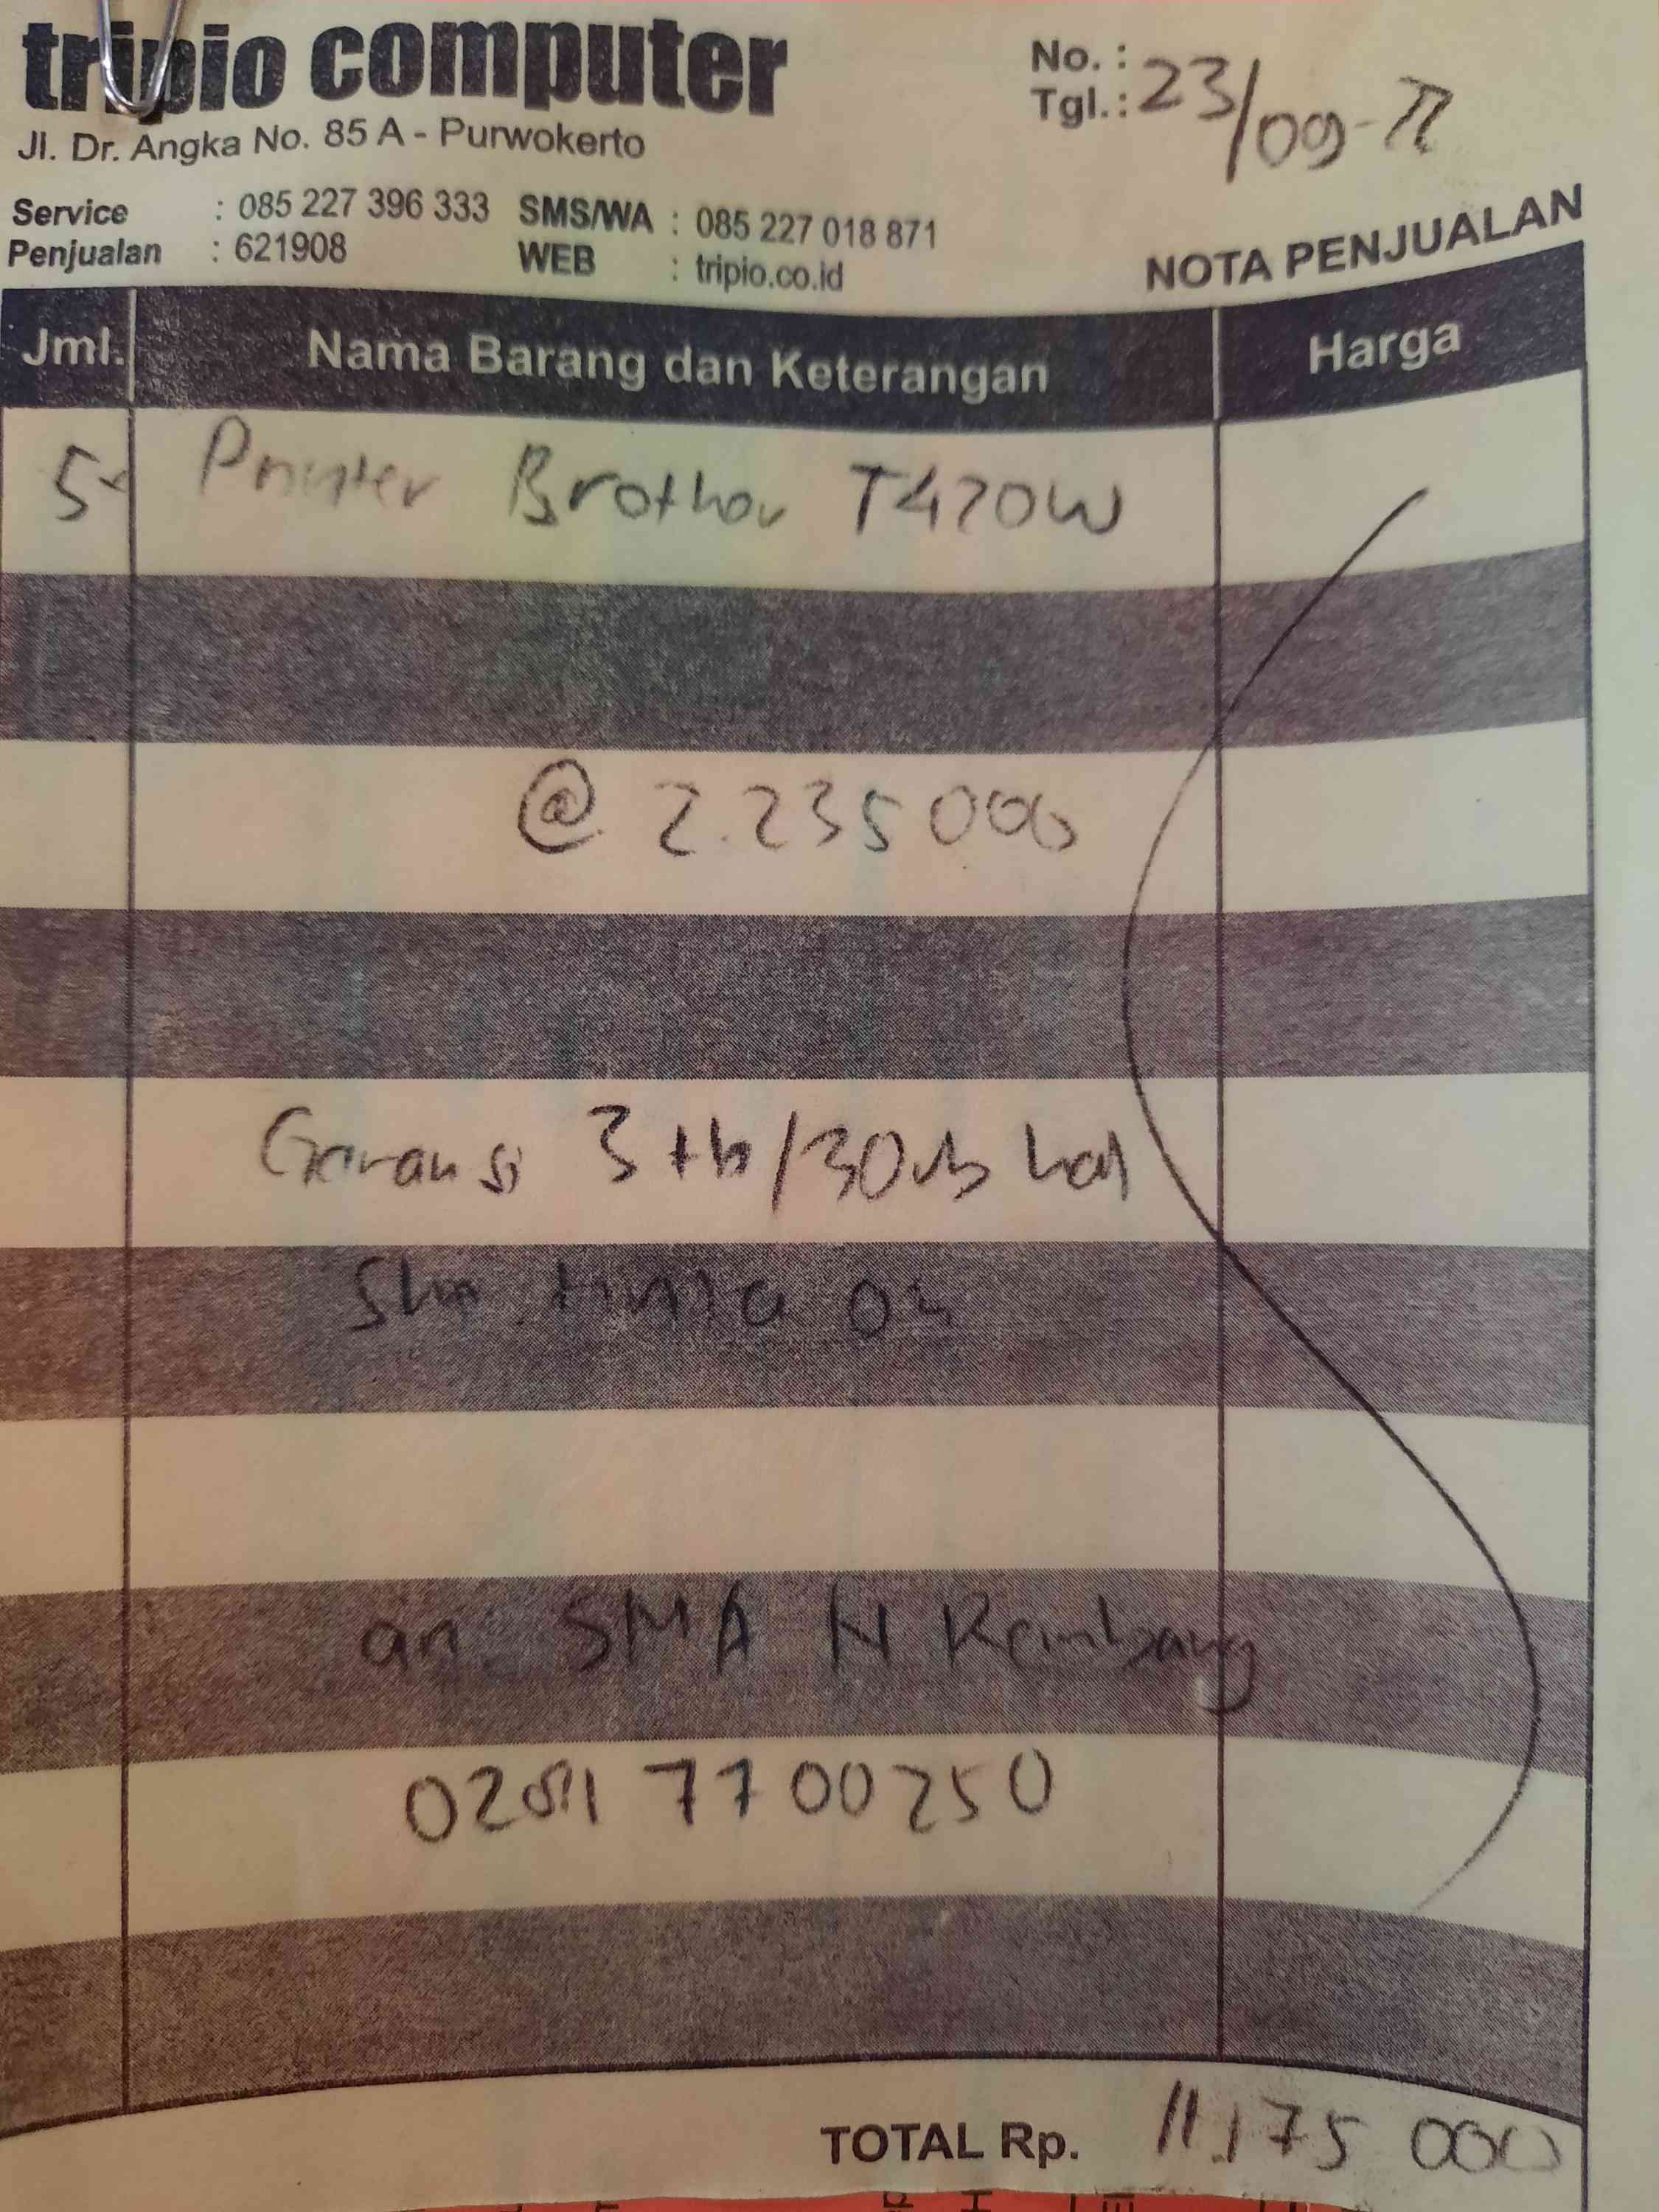 tripio computer
Jl. Dr. Angka No. 85 A - Purwokerto
No. :
Tgl. : 23/09-22
Service : 085 227 396 333 SMS/WA : 085 227 018 871
Penjualan : 621908 WEB : tripio.co.id
NOTA PENJUALAN
Jml. Nama Barang dan Keterangan Harga
5 Printer Brother T420W
@ 2.235 000
Garansi 3 th/30rb hal
tinta
an SMA N Rembang
0281 7700250
TOTAL Rp. 11.175 000